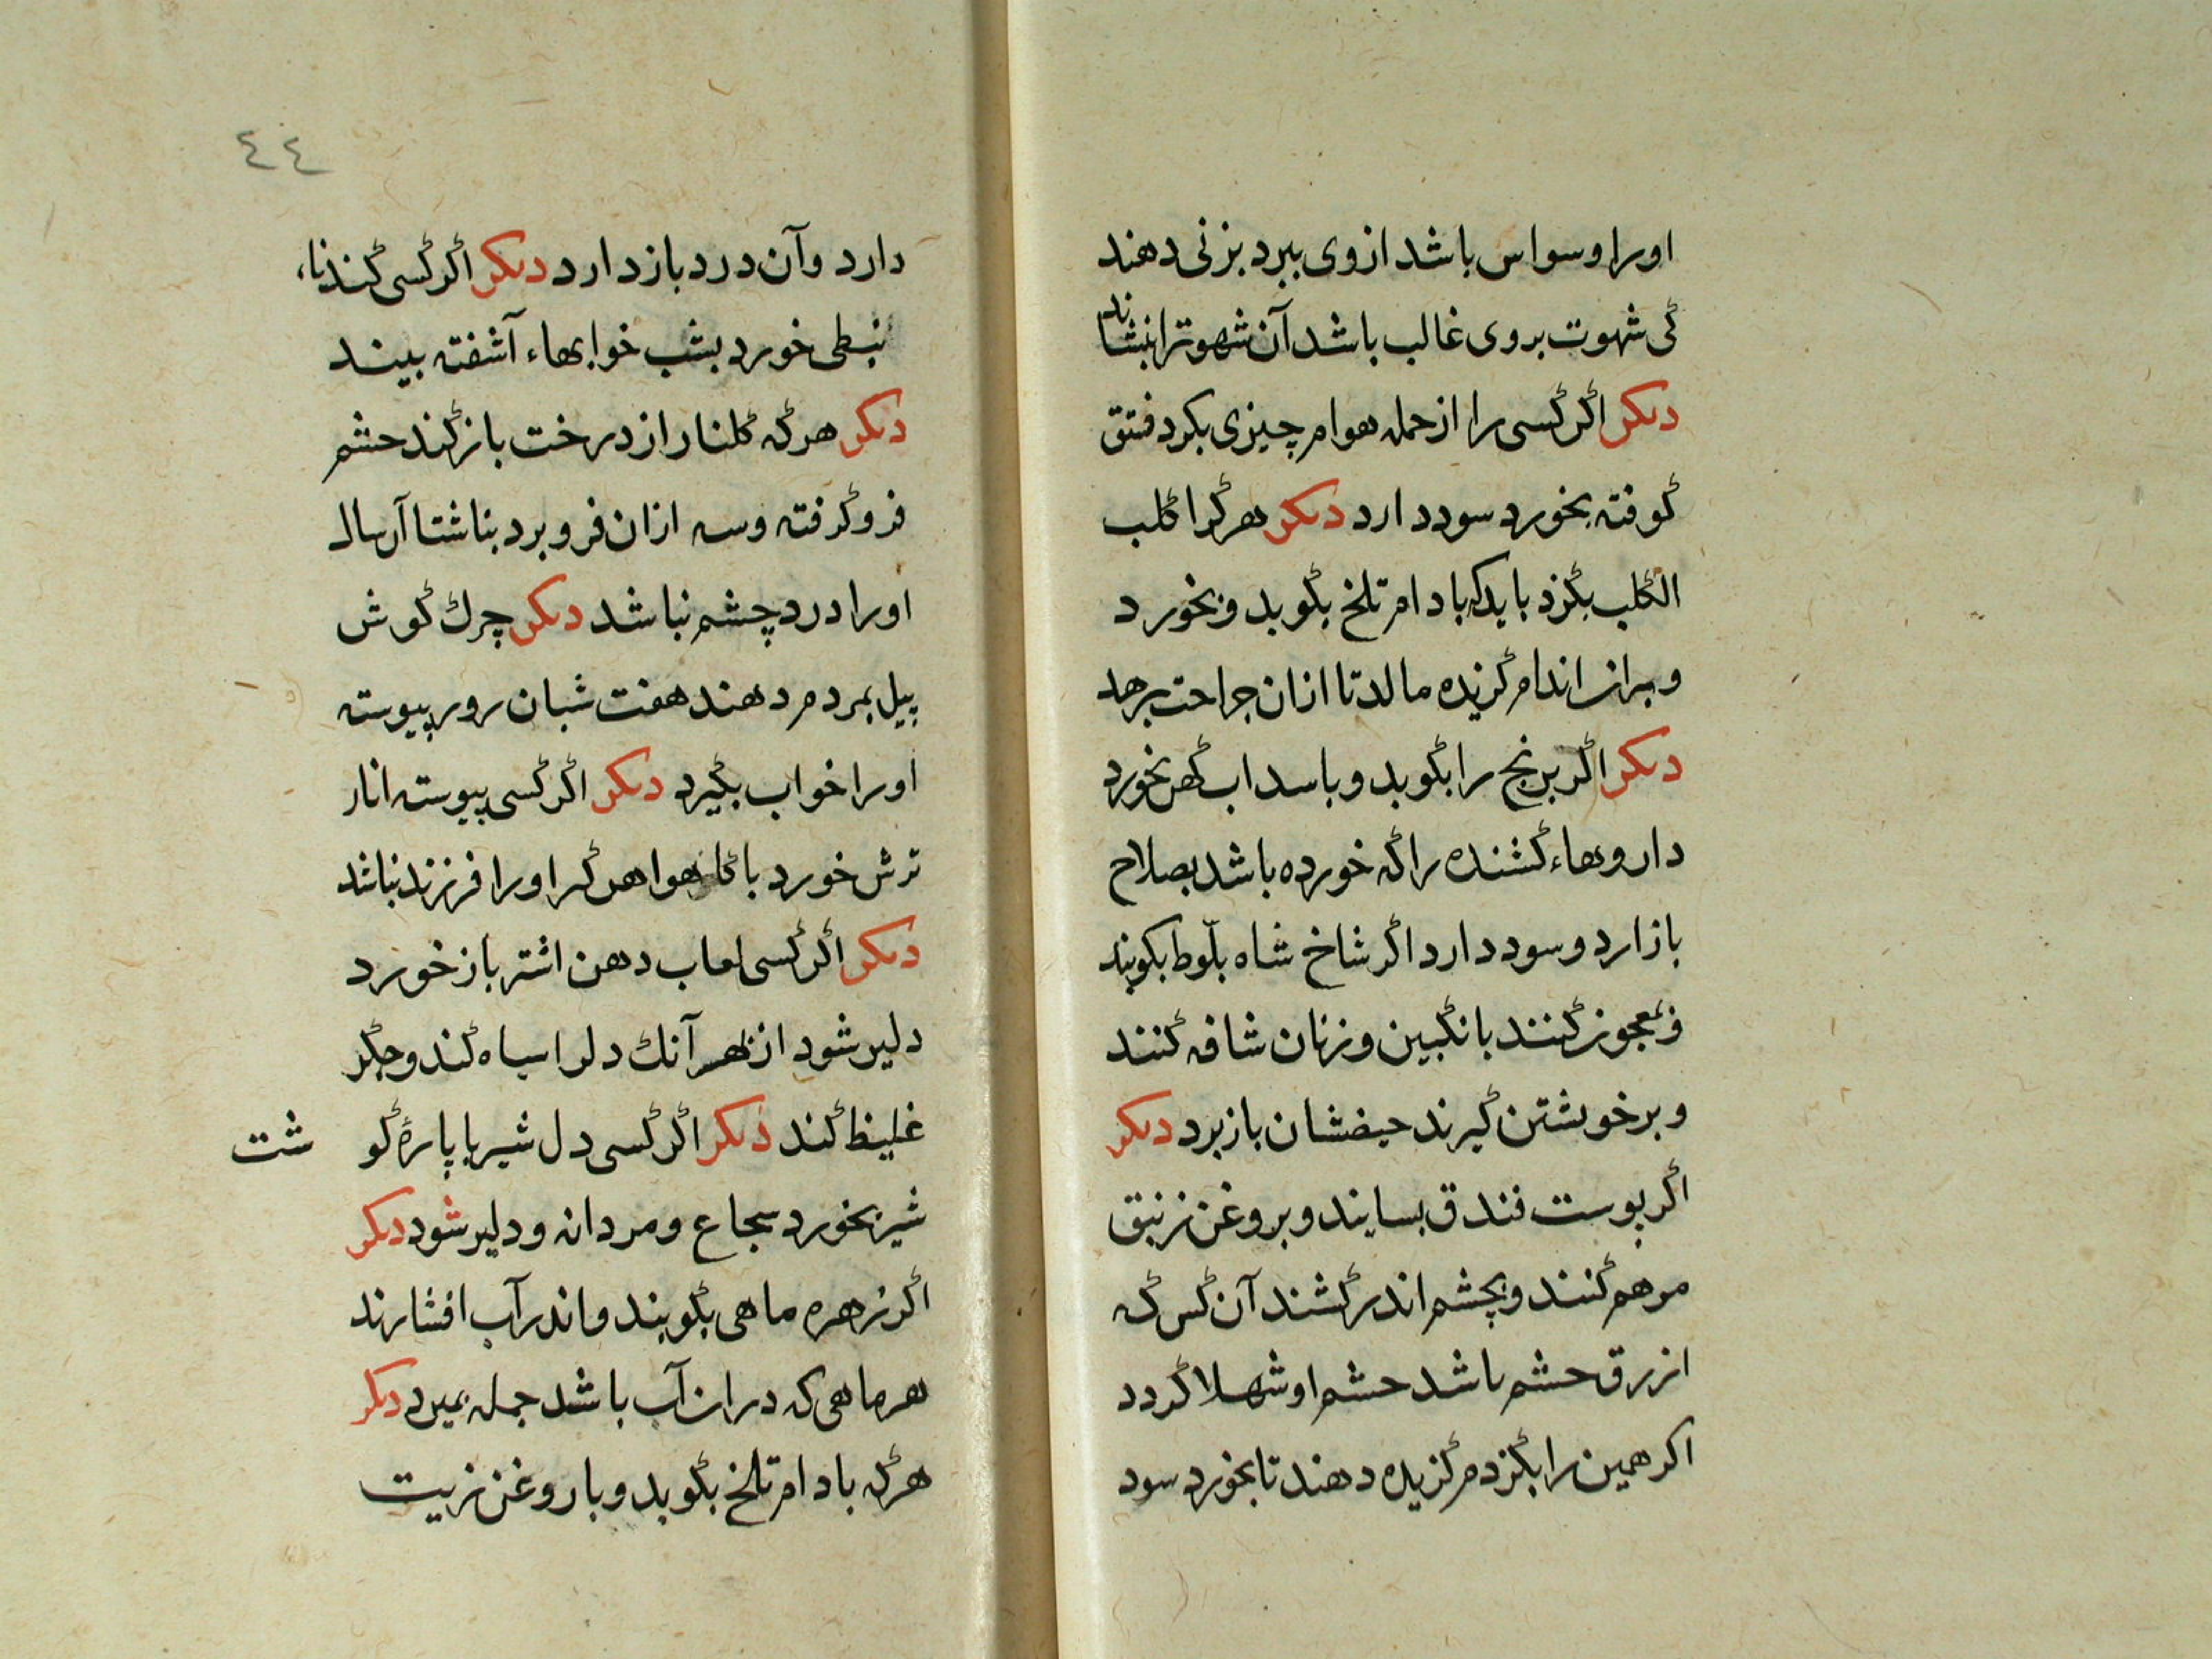 اورا وسواس باشد ازوی ببرد بزنی دهند
کی شهوت بروی غالب باشد آن شهوترا بنشاند
دیکر اکر کسی را از جمله هوام چیزی بکزد فندق
کوفته بخورد سود دارد دیکر هر کرا کلب
الکلب بکزد باید که بادام تلخ بکوبد و بخورد
و بران اندام کزیده مالد تا ازان جراحت برهد
دیکر اکر برنج را بکوبد و با سداب کهن بخورد
داروهاء کشنده را که خورده باشد بصلاح
باز ارد و سود دارد اکر شاخ شاه بلّوط بکوبند
و معجون کنند بانکبین و زنان شافه کنند
و بر خویشتن کیرند حیضشان باز برد دیکر
اکر پوست فندق بسایند و بروغن زنبق
مرهم کنند و بچشم اندر کشند آن کس که
ازرق چشم باشد چشم او شهلا کردد
اکر همین را بکزدم کزیده دهند تا بخورد سود
٤٤
دارد وآن درد باز دارد دیکر اکر کسی کندناء
نبطی خورد بشب خوابهاء آشفته بیند
دیکر هر که کلنار از درخت باز کند چشم
فرو کرفته و سه ازان فرو برد بناشتا آن سال
اورا درد چشم نباشد دیکر چرک کوش
پیل بمردم دهند هفت شبان روز پیوسته
اورا خواب بکیرد دیکر اکر کسی پیوسته انار
ترش خورد با کاهو اهن کر اورا فرزند نباشد
دیکر اکر کسی لعاب دهن اشتر باز خورد
دلیر شود از بهر آنک دلرا سیاه کند و جکر
غلیظ کند دیکر اکر کسی دل شیر یا پارهٔ کوشت
شیر بخورد شجاع و مردانه و دلیر شود دیکر
اکر زهره ماهی بکوبند و اندر آب افشارند
هر ماهی که دران آب باشد جمله بمیرد دیکر
هر که بادام تلخ بکوبد و با روغن زیت